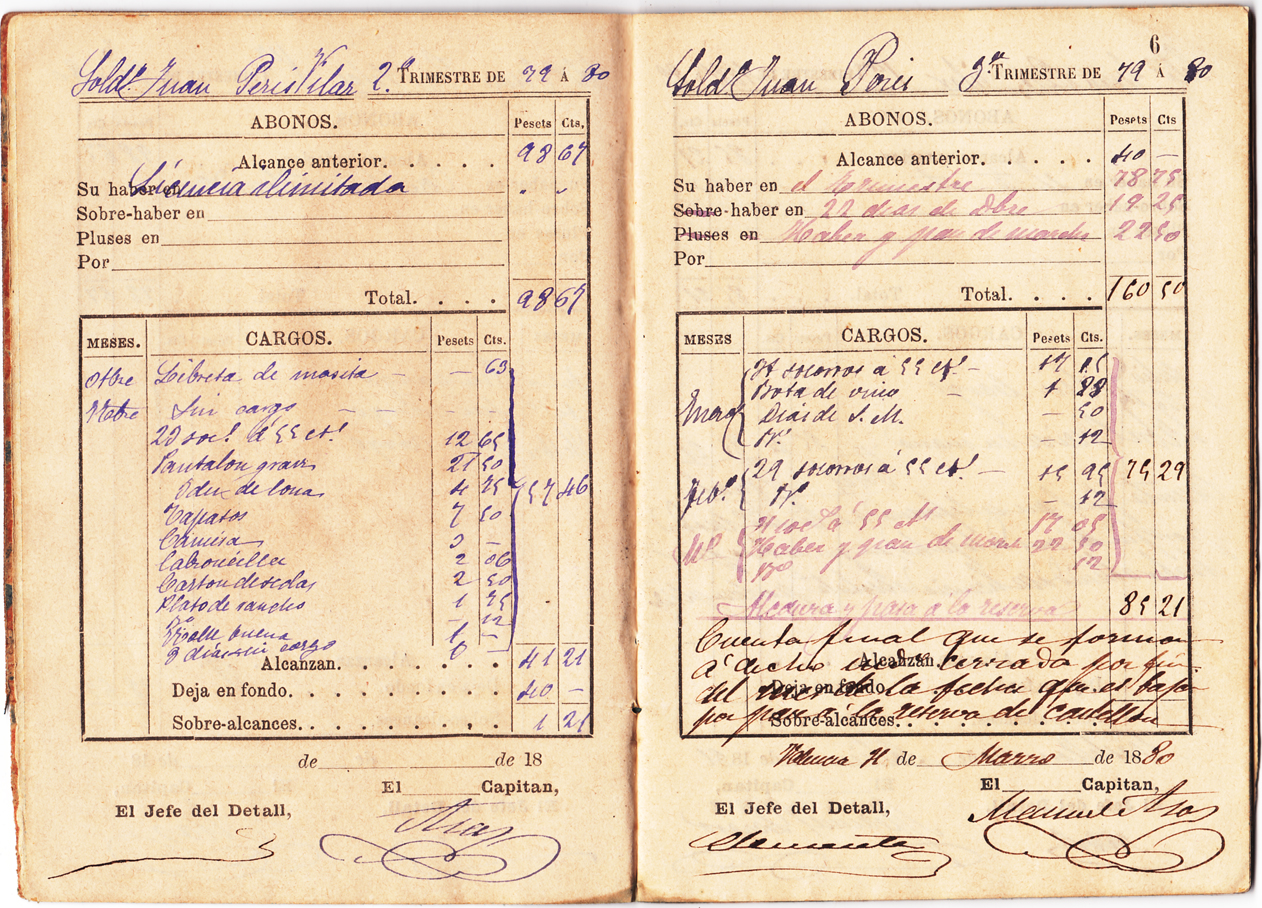 Sold.º Juan Peris Vilar 2.º TRIMESTRE DE 79 Á 80
ABONOS. Pesets Cts.
Alcance anterior. . . . . . 98 67
Su haber en Licencia ilimitada " "
Sobre-haber en
Pluses en
Por
Total. . . . 98 67
MESES. CARGOS. Pesets Cts.
Otbre Libreta de masita — — 63
Nbre Sin cargo — — — —
23 soc.s á 55 ct.s 12 65
Pantalon grans 21 50
Idem de lona 4 75 57 46
Zapatos 7 50
Camisa 3 —
Calzoncillos 2 06
Carton de sedas 2 50
Plato de rancho 1 75
— 12
buena 1 —
3 dias sin cargo 6
Alcanzan. . . . . . . 41 21
Deja en fondo. . . . . . . 40 —
Sobre-alcances. . . . . . . 1 21
de de 18
El Capitan,
El Jefe del Detall,
Aras
6
Sold.º Juan Peris 3.er TRIMESTRE DE 79 Á 80
ABONOS. Pesets Cts
Alcance anterior. . . . . . 40 —
Su haber en el trimestre 78 75
Sobre-haber en 22 dias de Dbre 19 25
Pluses en Haber y pan de marcha 22 50
Por
Total. . . . 160 50
MESES CARGOS. Pesets Cts.
31 socorros á 55 ct.s — 17 05
Enero Bota de vino — 1 88
Dias de S. M. — 50
— 12
29 socorros á 55 ct.s — 15 95 75 29
Feb.º — 12
31 soc.s á 55 17 05
Haber y pan de march 22 50
12
y pasa á la reserva 85 21
Cuenta final que se forma
á dicho Alcanzan. cerrada por fin
del mes Deja en fondo de la fecha que es baja
por pase Sobre-alcances. . . . á la reserva de Castellon
Valencia 31 de Marzo de 1880
El Capitan,
El Jefe del Detall,
Manuel Aras